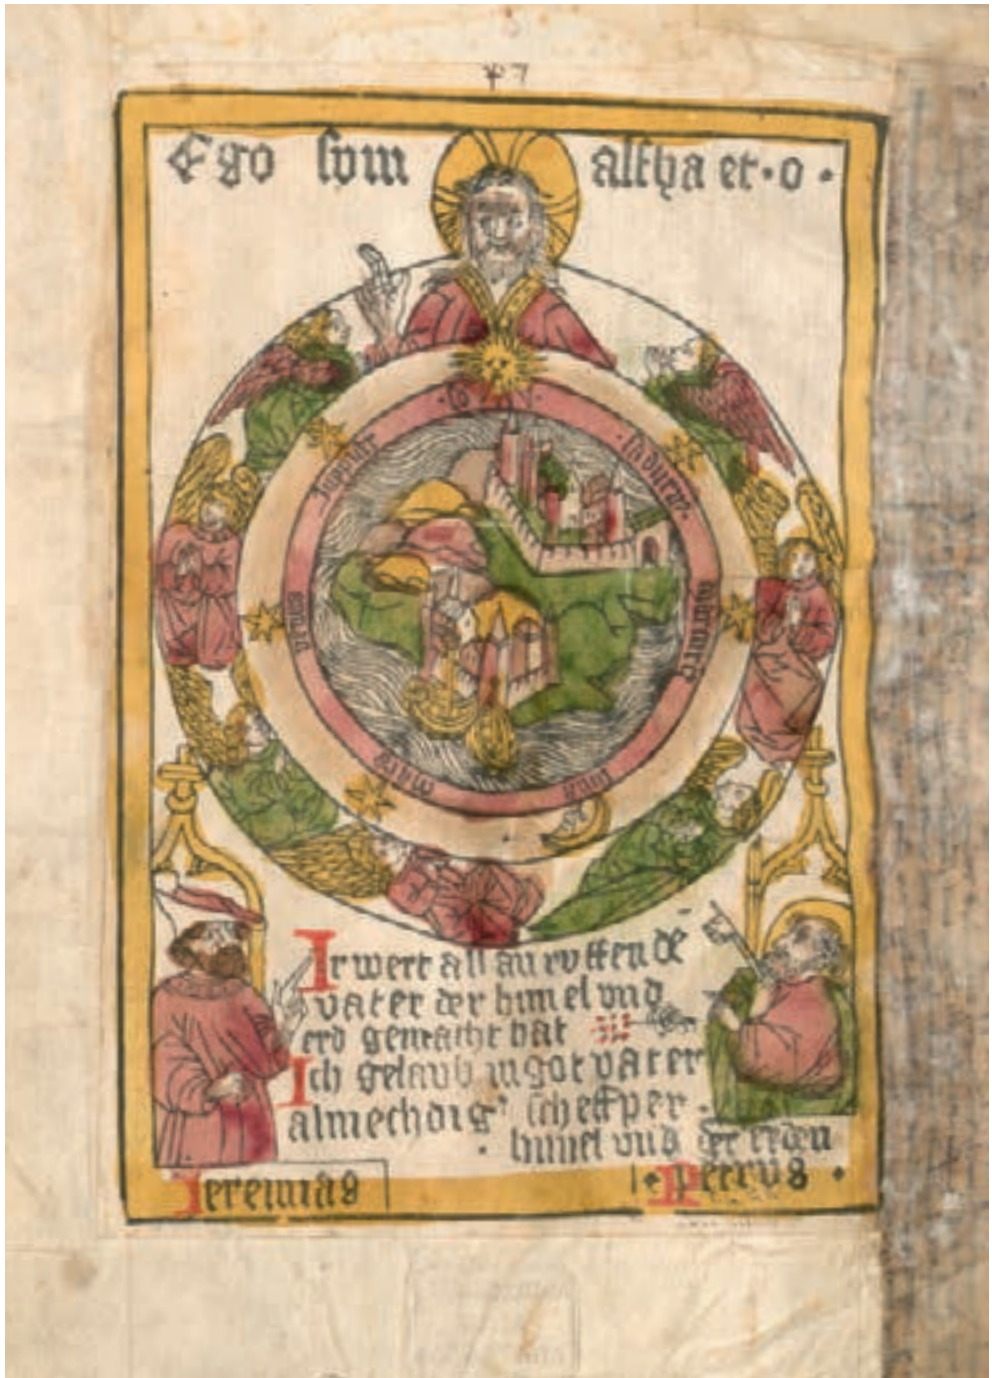 Ego sum alfha et · o ·
saturnus
Juppiter
mercurius
venus
mars
luna
Ir wert all an rvffen dē
vater der himel vnd
erd gemacht hat
Ich gelaub in got vater
almechdig° scheffper ·
himel vnd der erden
Jeremias
· Petrus ·